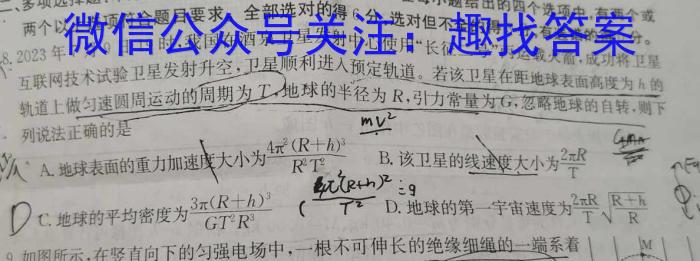 一、多项选择题
小题给出的四个选项中,有两个或
两个以
题目要求,全部选对的得6分,选对但不
分。
微信公众号关注：趣找答案
8. 2023年
时,我国在酒泉卫星发射中心使用“长征
运载火箭,成功将卫星
互联网技术试验卫星发射升空,卫星顺利进入预定轨道。若该卫星在距地球表面高度为h的
轨道上做匀速圆周运动的周期为T,地球的半径为R,引力常量为G,忽略地球的自转,则下
列说法正确的是
mv²
A. 地球表面的重力加速度大小为4π²(R+h)³/R²T²  B. 该卫星的线速度大小为2πR/T
C. 地球的平均密度为3π(R+h)³/GT²R³  D. 地球的第一宇宙速度为2πR/T √(R+h)/R
D
9. 如图所示,在竖直向下的匀强电场中,一根不可伸长的绝缘细绳的一端系着
M